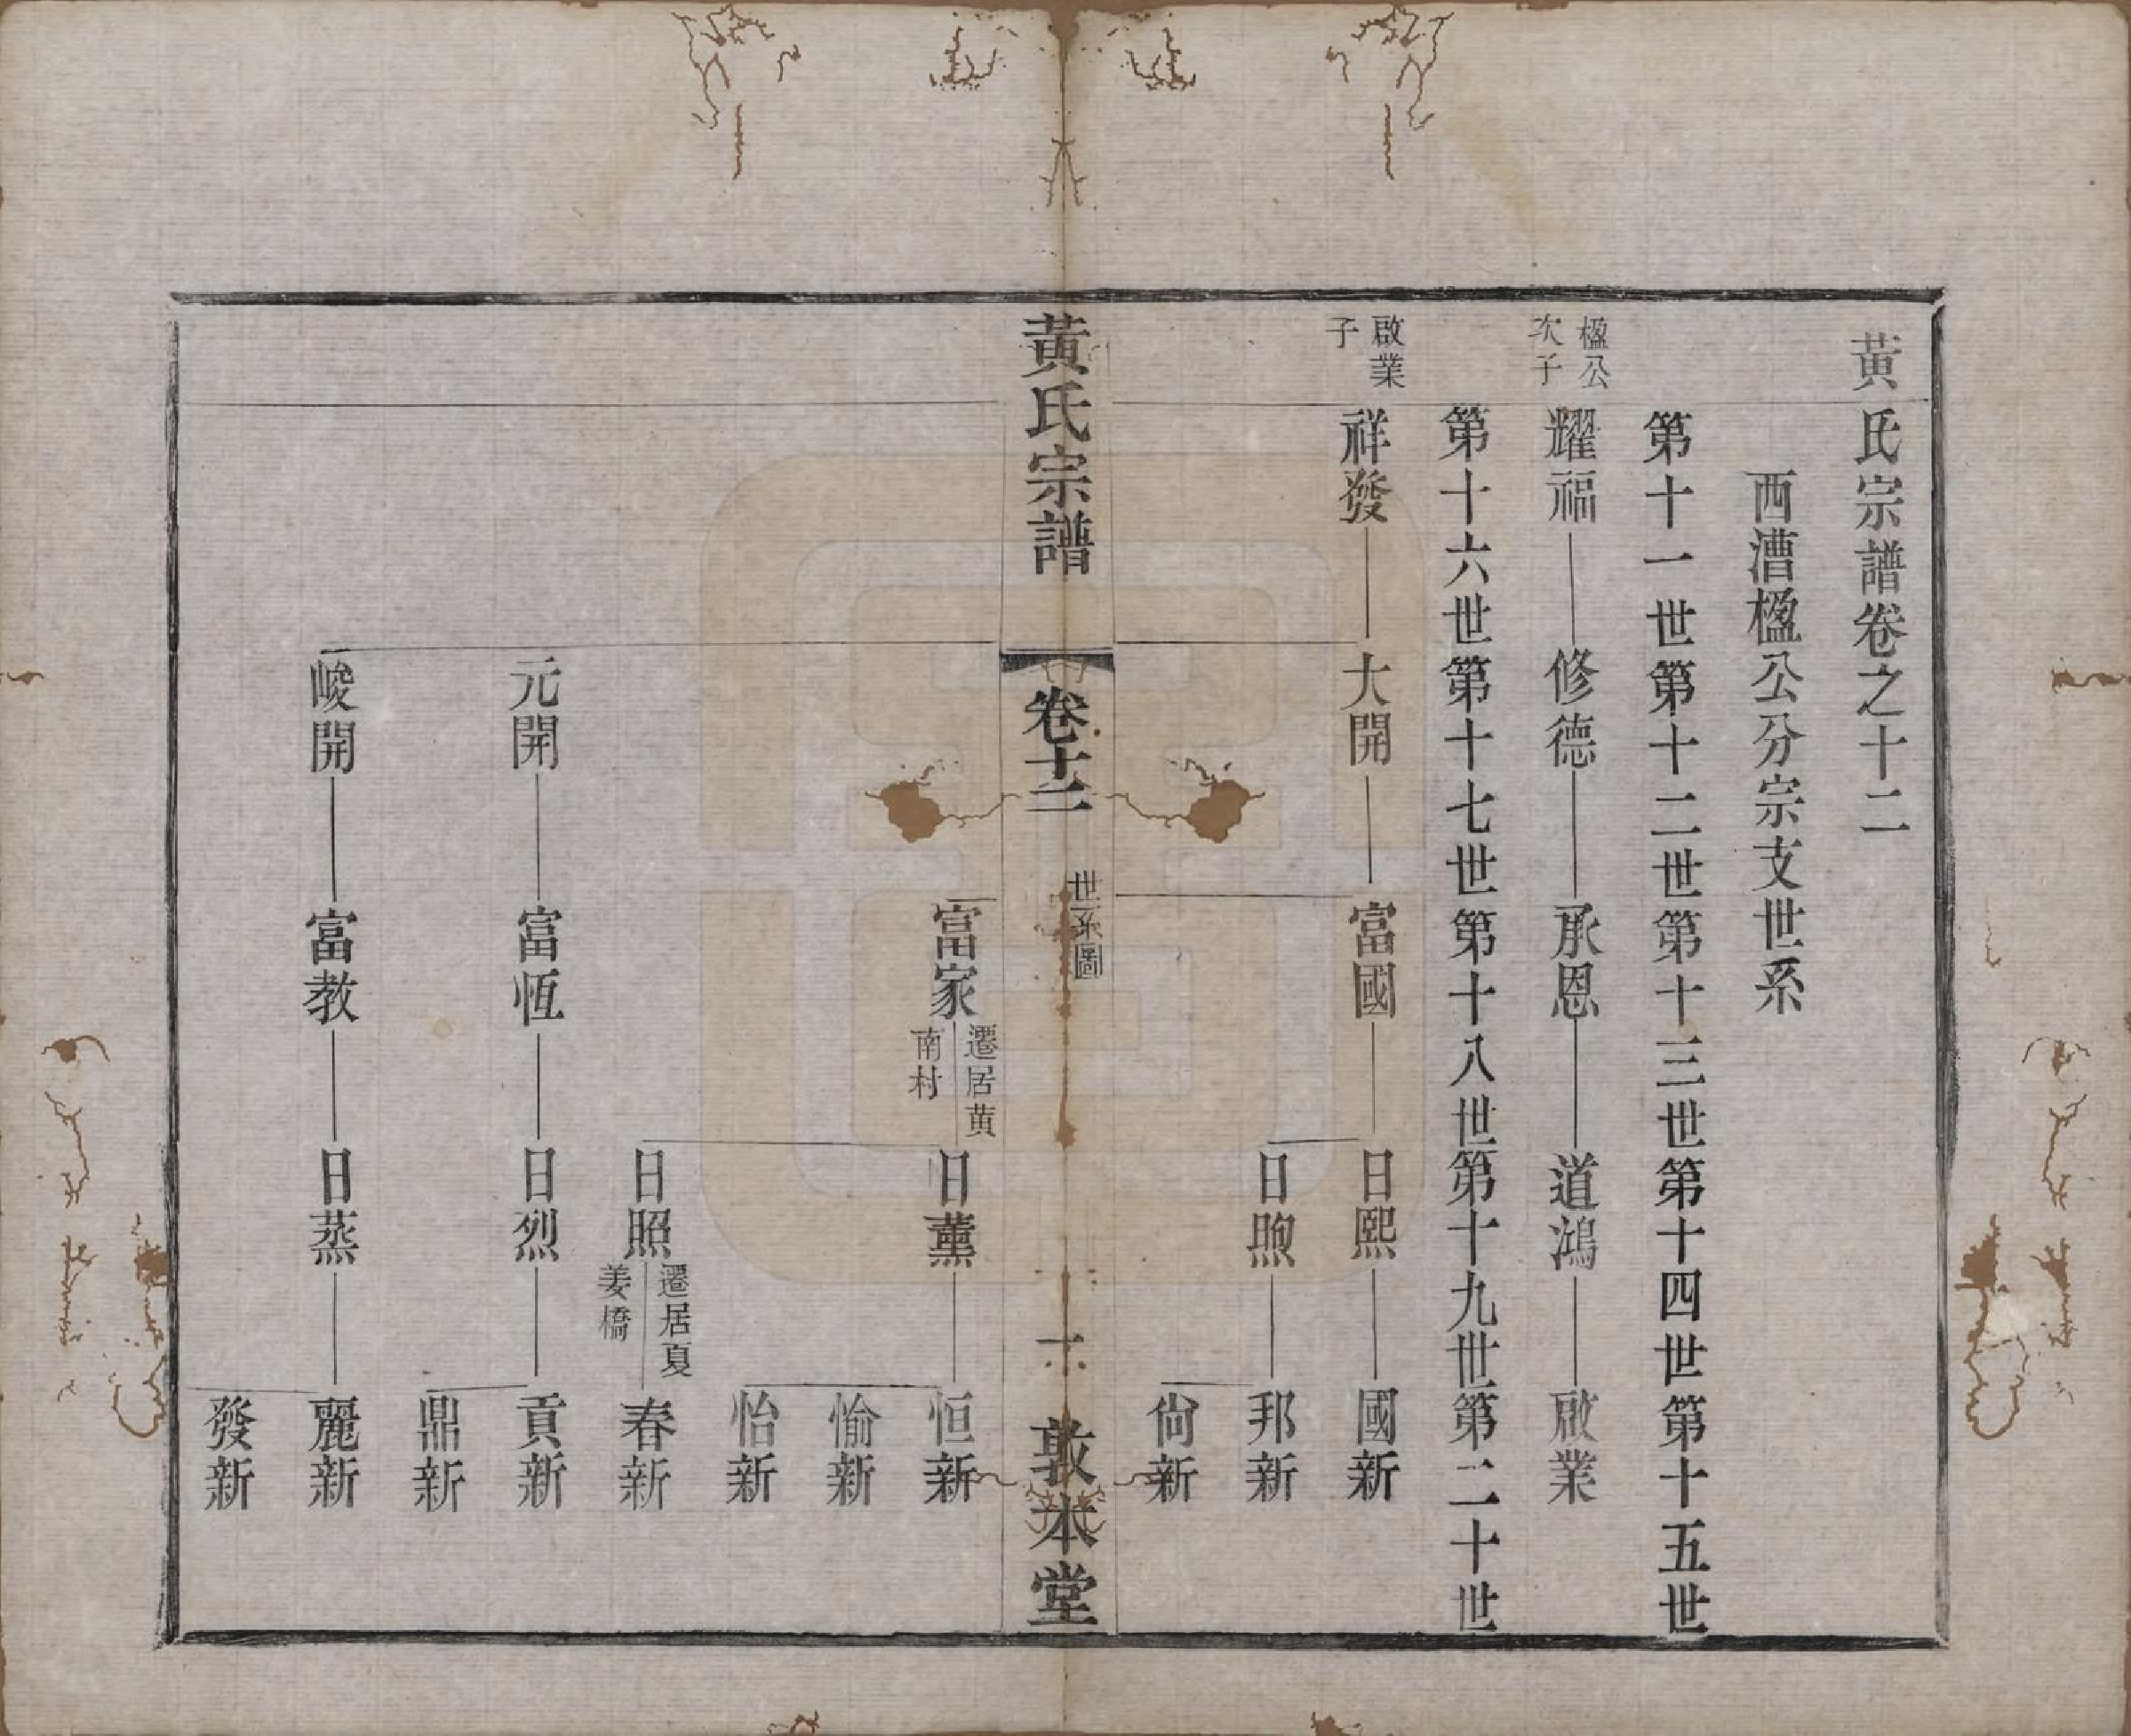 黃氏宗譜卷之十二
西漕楹公分宗支世系
第十一世第十二世第十三世第十四世第十五世
楹公次子
耀福 修德 承恩 道鴻 啟業
第十六世第十七世第十八世第十九世第二十世
啟業子
祥發 大開 富國 日熙 國新
日煦 邦新
尙新
黃氏宗譜 卷十二 世系圖 一 敦本堂
富家 遷居黃南村 日薰 恒新
愉新
怡新
日照 遷居夏姜橋 春新
元開 富恆 日烈 貢新
鼎新
峻開 富教 日蒸 麗新
發新